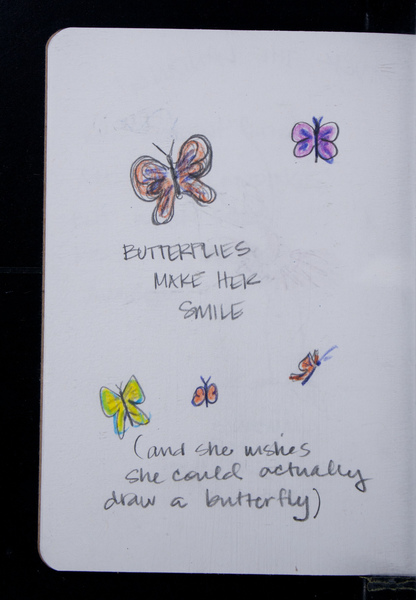 BUTTERFLIES
MAKE HER
SMILE
(and she wishes
she could actually
draw a butterfly)